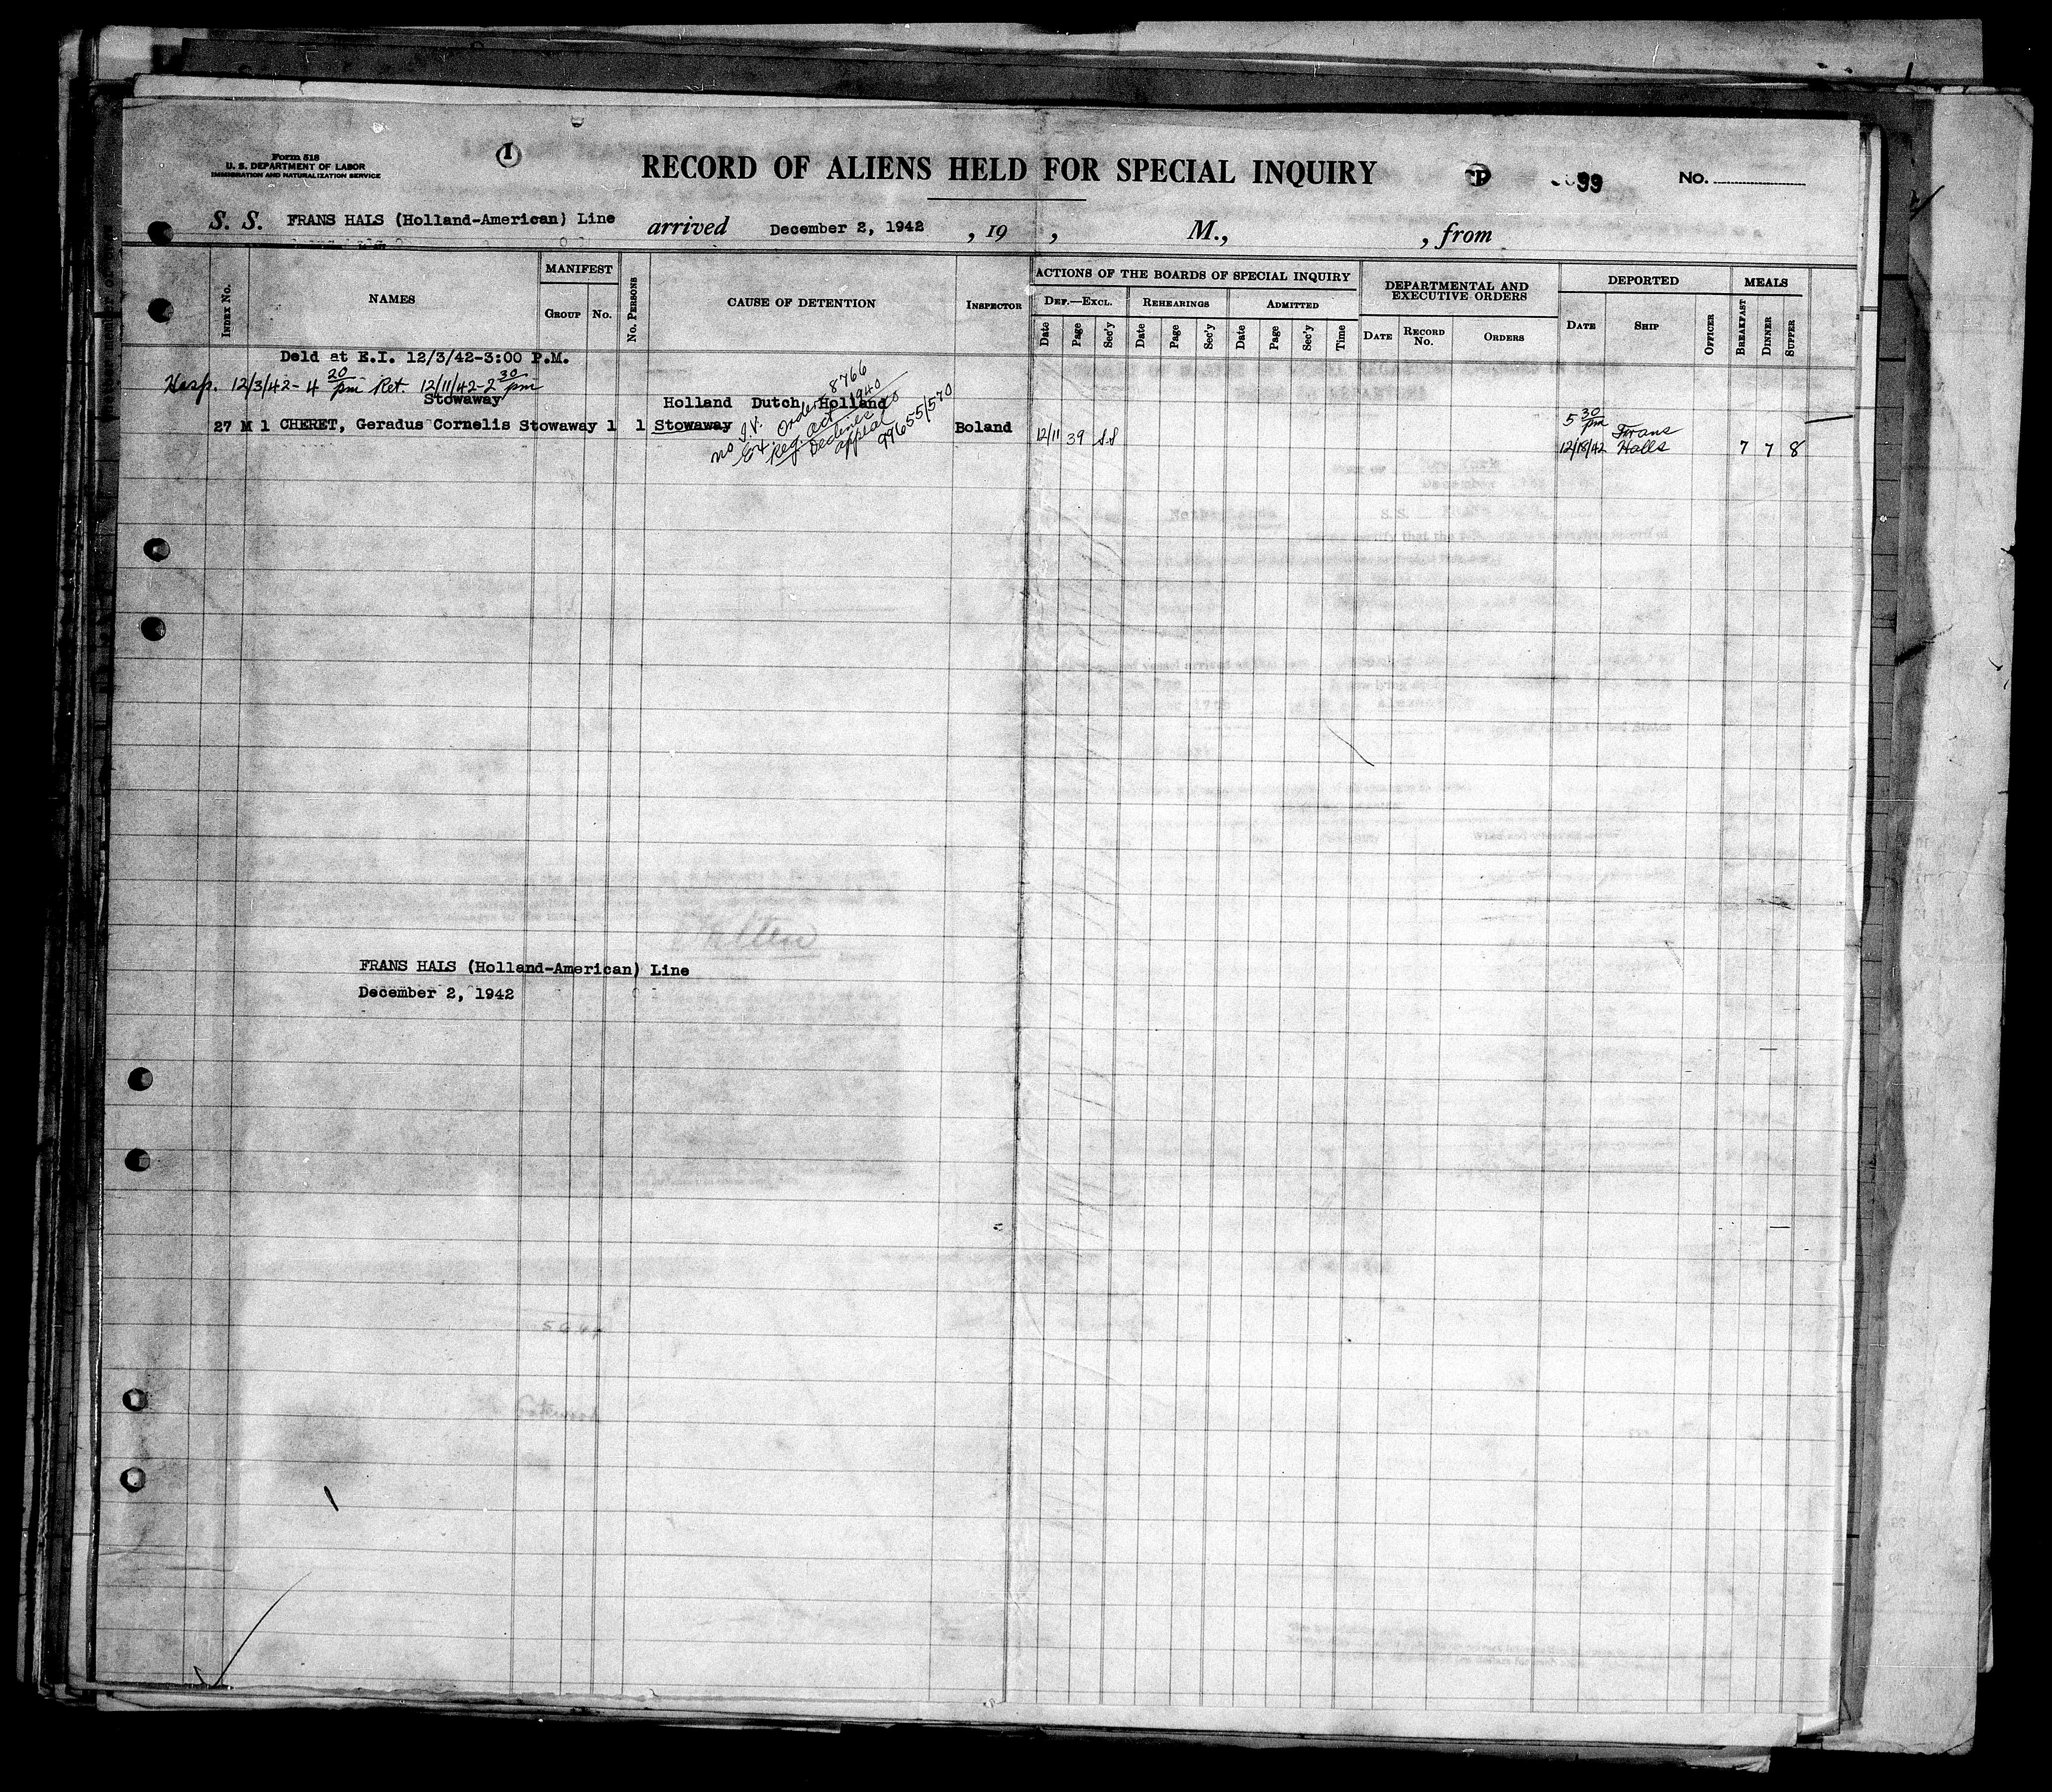 Form 518
U. S. DEPARTMENT OF LABOR
IMMIGRATION AND NATURALIZATION SERVICE
1
RECORD OF ALIENS HELD FOR SPECIAL INQUIRY
99
No.
S. S. FRANS HALS (Holland-American) Line arrived December 2, 1942 , 19 , M., , from
INDEX No.
NAMES
MANIFEST
GROUP
No.
No. PERSONS
CAUSE OF DETENTION
INSPECTOR
ACTIONS OF THE BOARDS OF SPECIAL INQUIRY
DEF.—EXCL.
REHEARINGS
ADMITTED
Date Page Sec'y Date Page Sec'y Date Page Sec'y Time
DEPARTMENTAL AND
EXECUTIVE ORDERS
DATE
RECORD No.
ORDERS
DEPORTED
DATE
SHIP
OFFICER
MEALS
BREAKFAST
DINNER
SUPPER
Deld at E.I. 12/3/42-3:00 P.M.
Hosp. 12/3/42- 4 20 pm Ret. 12/11/42-2 30 pm
Stowaway
Holland Dutch Holland
27 M 1 CHERET, Geradus Cornelis Stowaway 1 1 Stowaway Boland 12/11 39 S.S
no I.V.
Ex. Order 8766
Reg. Act 1940
Declines to
appeal
99655/570
5 30 pm
12/18/42 Frans Halls 7 7 8
FRANS HALS (Holland-American) Line
December 2, 1942